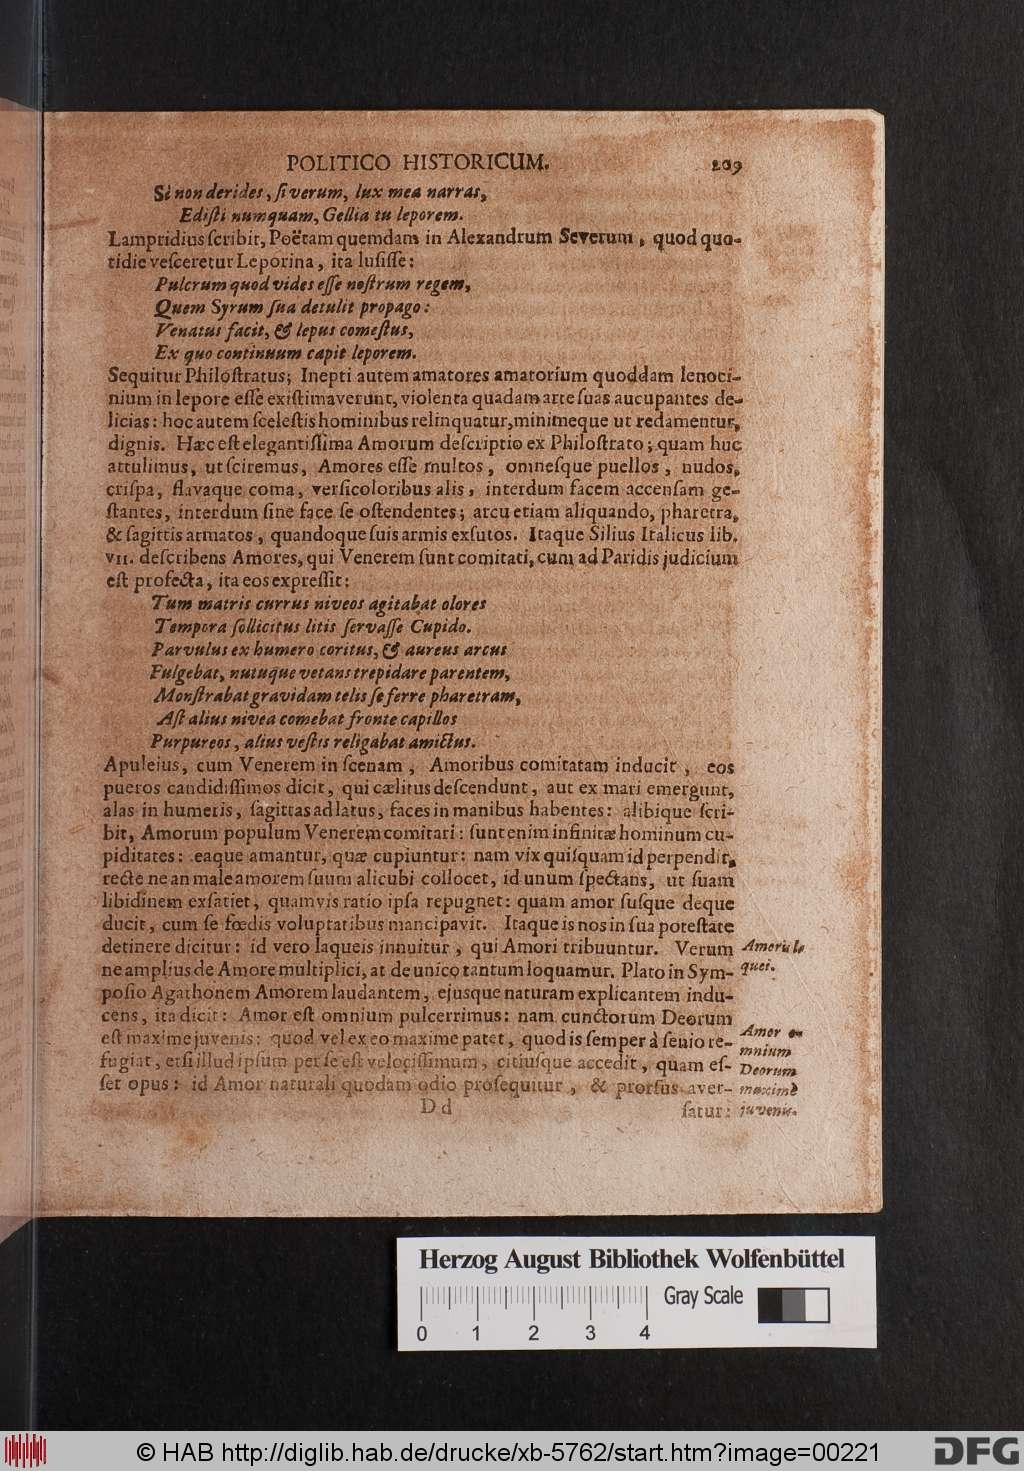 POLITICO HISTORICUM. 209
Si non derides, ſi verum, lux mea narras,
Ediſti numquam, Gellia tu leporem.
Lampridius ſcribit, Poëtam quemdam in Alexandrum Severum, quod quo-
tidie veſceretur Leporina, ita luſiſſe:
Pulcrum quod vides eſſe noſtrum regem,
Quem Syrum ſua detulit propago:
Venatus facit, & lepus comeſtus,
Ex quo continuum capit leporem.
Sequitur Philoſtratus; Inepti autem amatores amatorium quoddam lenoci-
nium in lepore eſſe exiſtimaverunt, violenta quadam arte ſuas aucupantes de-
licias: hoc autem ſceleſtis hominibus relinquatur, minimeque ut redamentur,
dignis. Hæc eſt elegantiſſima Amorum deſcriptio ex Philoſtrato; quam huc
attulimus, ut ſciremus, Amores eſſe multos, omneſque puellos, nudos,
criſpa, flavaque coma, verſicoloribus alis, interdum facem accenſam ge-
ſtantes, interdum ſine face ſe oſtendentes; arcu etiam aliquando, pharetra,
& ſagittis armatos, quandoque ſuis armis exſutos. Itaque Silius Italicus lib.
VII. deſcribens Amores, qui Venerem ſunt comitati, cum ad Paridis judicium
eſt profecta, ita eos expreſſit:
Tum matris currus niveos agitabat olores
Tempora ſollicitus litis ſervaſſe Cupido.
Parvulus ex humero coritus, & aureus arcus
Fulgebat, nutuque vetans trepidare parentem,
Monſtrabat gravidam telis ſe ferre pharetram,
Aſt alius nivea comebat fronte capillos
Purpureos, alius veſtis religabat amictus.
Apuleius, cum Venerem in ſcenam, Amoribus comitatam inducit, eos
pueros candidiſſimos dicit, qui cælitus deſcendunt, aut ex mari emergunt,
alas in humeris, ſagittas ad latus, faces in manibus habentes: alibique ſcri-
bit, Amorum populum Venerem comitari: ſunt enim infinitæ hominum cu-
piditates: eaque amantur, quæ cupiuntur: nam vix quiſquam id perpendit,
recte ne an male amorem ſuum alicubi collocet, id unum ſpectans, ut ſuam
libidinem exſatiet, quamvis ratio ipſa repugnet: quam amor ſuſque deque
ducit, cum ſe fœdis voluptatibus mancipavit. Itaque is nos in ſua poteſtate
detinere dicitur: id vero laqueis innuitur, qui Amori tribuuntur. Verum
Amoris la
quei.
ne amplius de Amore multiplici, at de unico tantum loquamur. Plato in Sym-
poſio Agathonem Amorem laudantem, ejusque naturam explicantem indu-
cens, ita dicit: Amor eſt omnium pulcerrimus: nam cunctorum Deorum
eſt maxime juvenis: quod vel ex eo maxime patet, quod is ſemper à ſenio re-
fugiat, etſi illud ipſum per ſe eſt velociſſimum, citiuſque accedit, quam eſ-
ſet opus: id Amor naturali quodam odio proſequitur, & prorſus aver-
Amor o-
mnium
Deorum
maximè
juvenis.
D d ſatur:
Herzog August Bibliothek Wolfenbüttel
Gray Scale
0 1 2 3 4
© HAB http://diglib.hab.de/drucke/xb-5762/start.htm?image=00221
DFG